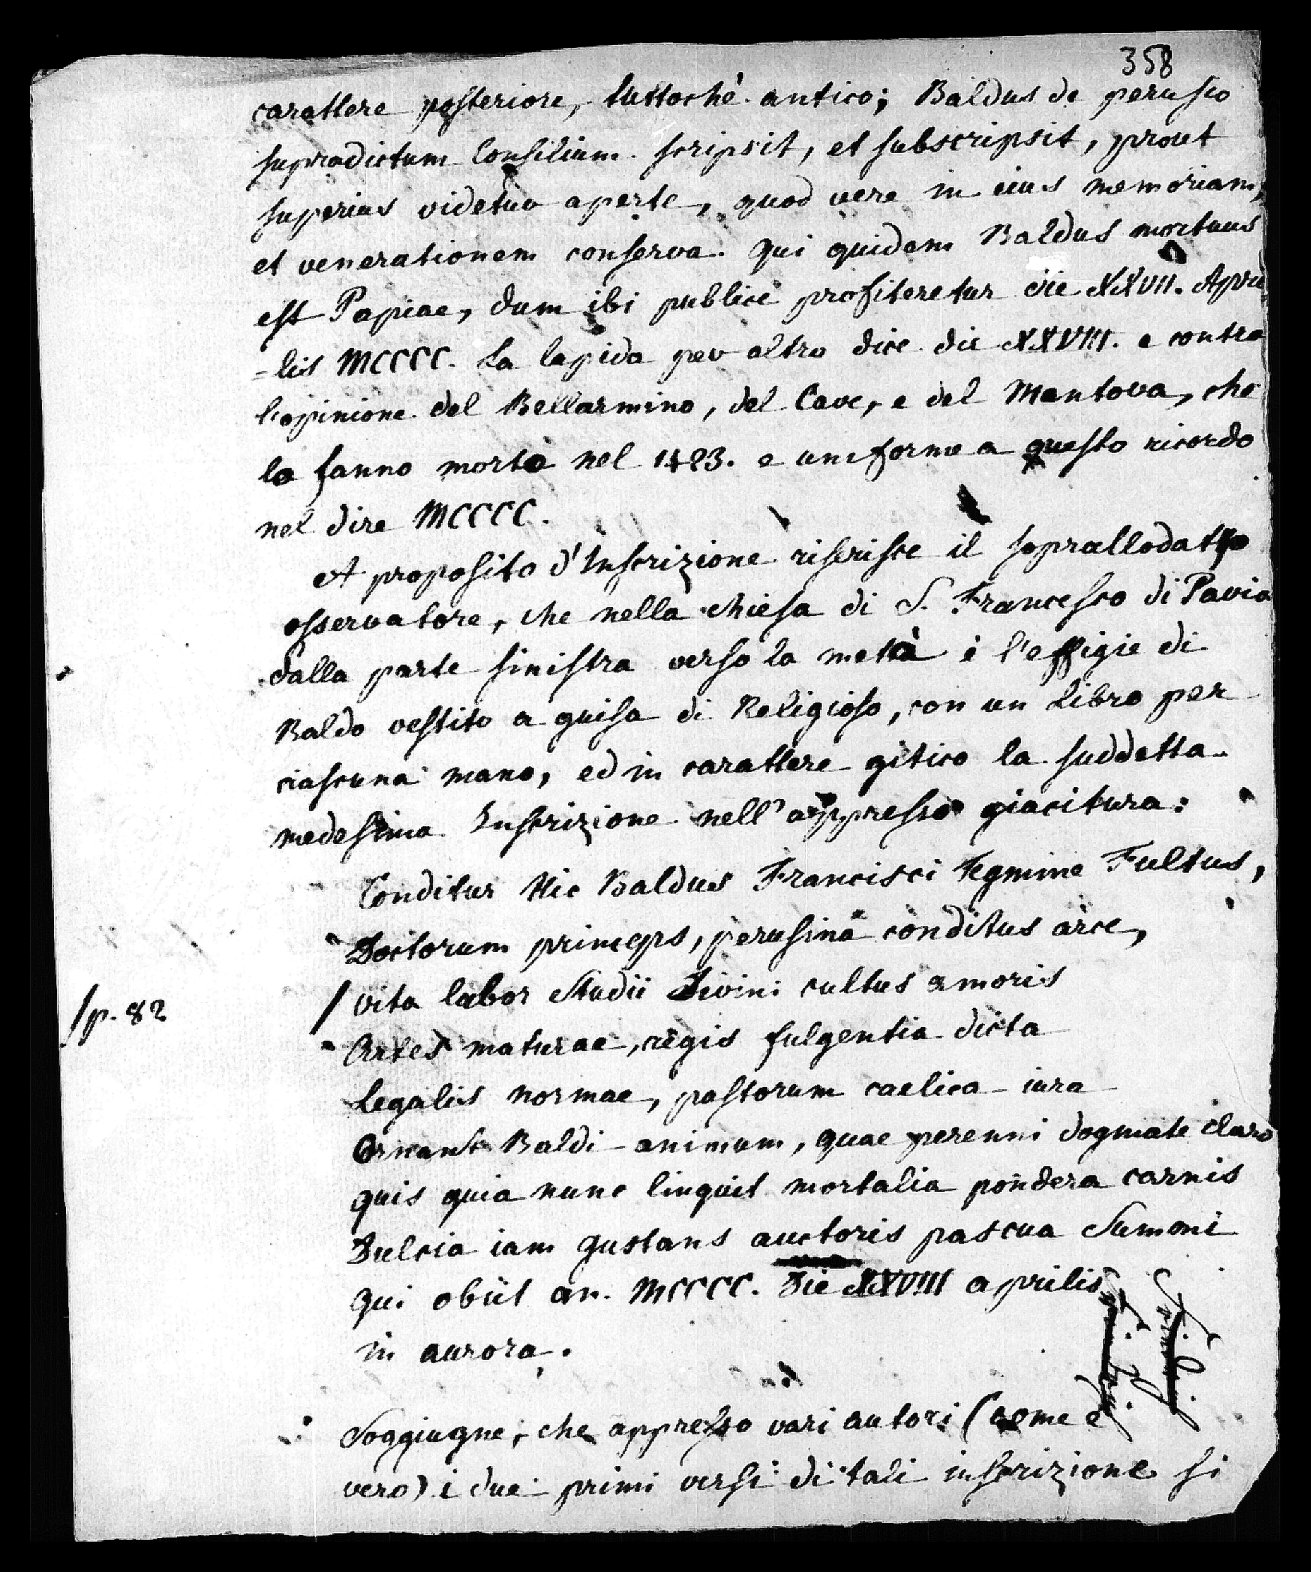 358
carattere posteriore, tuttochè antico; Baldus de perusio
supradictum Consilium scripsit, et subscripsit, prout
superius videtur aperte, quod vere in eius memoriam,
et venerationem conserva. Qui quidem Baldus mortuus
est Papiae, dum ibi publice profiteretur die XXVII. Apri
=lis MCCCC. La lapida per altro dice die XXVIII. e contra
l'opinione del Bellarmino, del Cave, e del Mantova, che
lo fanno morto nel 1423. e uniforme a questo ricordo
nel dire MCCCC.
A proposito d'Inscrizione riferisce il soprallodato
osservatore, che nella chiesa di S. Francesco di Pavia
dalla parte sinistra verso la metà è l'effigie di
Baldo vestito a guisa di Religioso, con un Libro per
ciascuna mano, ed in carattere gitico la suddetta
medesima Inscrizione nell'appresso giacitura:
Conditur Hic Baldus Francisci Tegmine Fultus,
Doctorum princeps, perusina conditus arce,
/ vita labor Studii Divini cultus amoris
/p. 82
Artes maturae, regis fulgentia dicta
Legalis normae, pastorum caelica iura
Ornant Baldi animum, quae perenni dogmate claro
quis quia nunc linquit mortalia pondera carnis
Dulcia iam gustans auctoris pascua Sumoni
qui obiit an. MCCCC. Die XXVIII aprilis
in aurora.
Soggiugne, che appresso vari autori (come è
vero) i due primi versi di tali inscrizione si